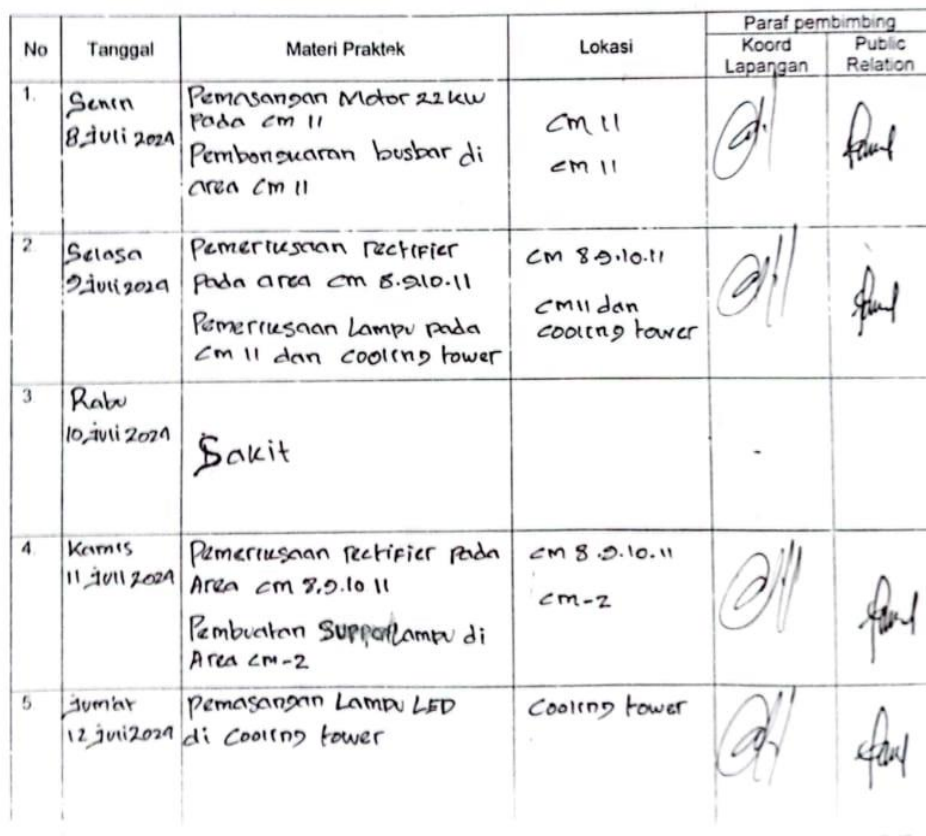 No Tanggal Materi Praktek Lokasi Paraf pembimbing
Koord Lapangan Public Relation
1. Senin
8 juli 2024
Pemasangan Motor 22 kW
Pada cm 11
Pembongkaran busbar di
area cm 11
cm 11
cm 11
2. Selasa
9 juli 2024
Pemeriksaan rectifier
Pada area cm 8.9.10.11
Pemeriksaan Lampu pada
cm 11 dan cooling tower
cm 8.9.10.11
cm 11 dan
cooling tower
3. Rabu
10 juli 2024
Sakit
-
4. Kamis
11 juli 2024
Pemeriksaan rectifier pada
Area cm 8.9.10 11
Pembuatan Support Lampu di
Area cm-2
cm 8.9.10.11
cm-2
5. jum'at
12 juli 2024
Pemasangan Lampu LED
di cooling tower
Cooling tower